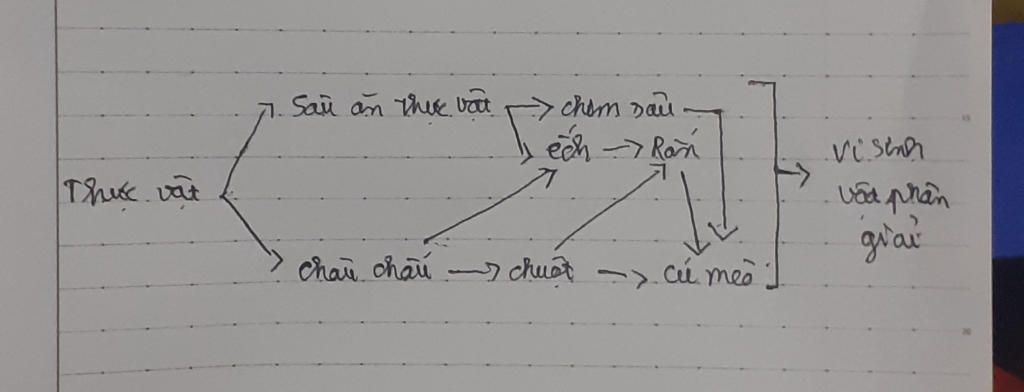 Sâu ăn thực vật → chim sâu
ếch → Rắn
Thực vật
Châu chấu → chuột → cú mèo
vi sinh
vật phân
giải